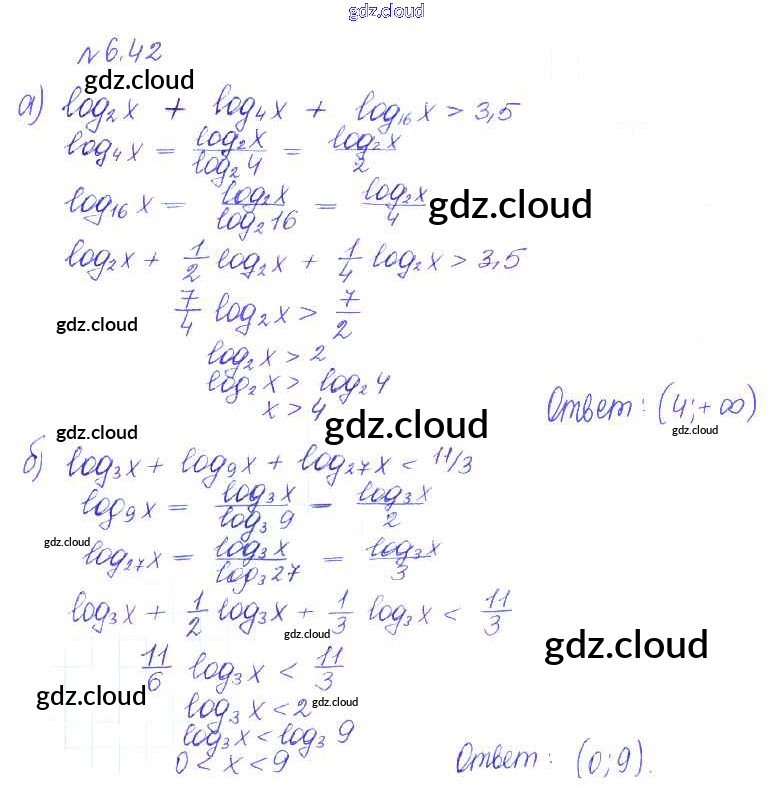 gdz.cloud
№6.42
gdz.cloud
а) log₂x + log₄x + log₁₆x > 3,5
log₄x = log₂x / log₂4 = log₂x / 2
log₁₆x = log₂x / log₂16 = log₂x / 4
gdz.cloud
log₂x + 1/2 log₂x + 1/4 log₂x > 3,5
7/4 log₂x > 7/2
gdz.cloud
log₂x > 2
log₂x > log₂4
x > 4
Ответ: (4; +∞)
gdz.cloud
gdz.cloud
gdz.cloud
б) log₃x + log₉x + log₂₇x < 11/3
log₉x = log₃x / log₃9 = log₃x / 2
gdz.cloud
log₂₇x = log₃x / log₃27 = log₃x / 3
log₃x + 1/2 log₃x + 1/3 log₃x < 11/3
gdz.cloud
gdz.cloud
11/6 log₃x < 11/3
gdz.cloud
gdz.cloud
log₃x < 2
log₃x < log₃9
0 < x < 9
Ответ: (0; 9).